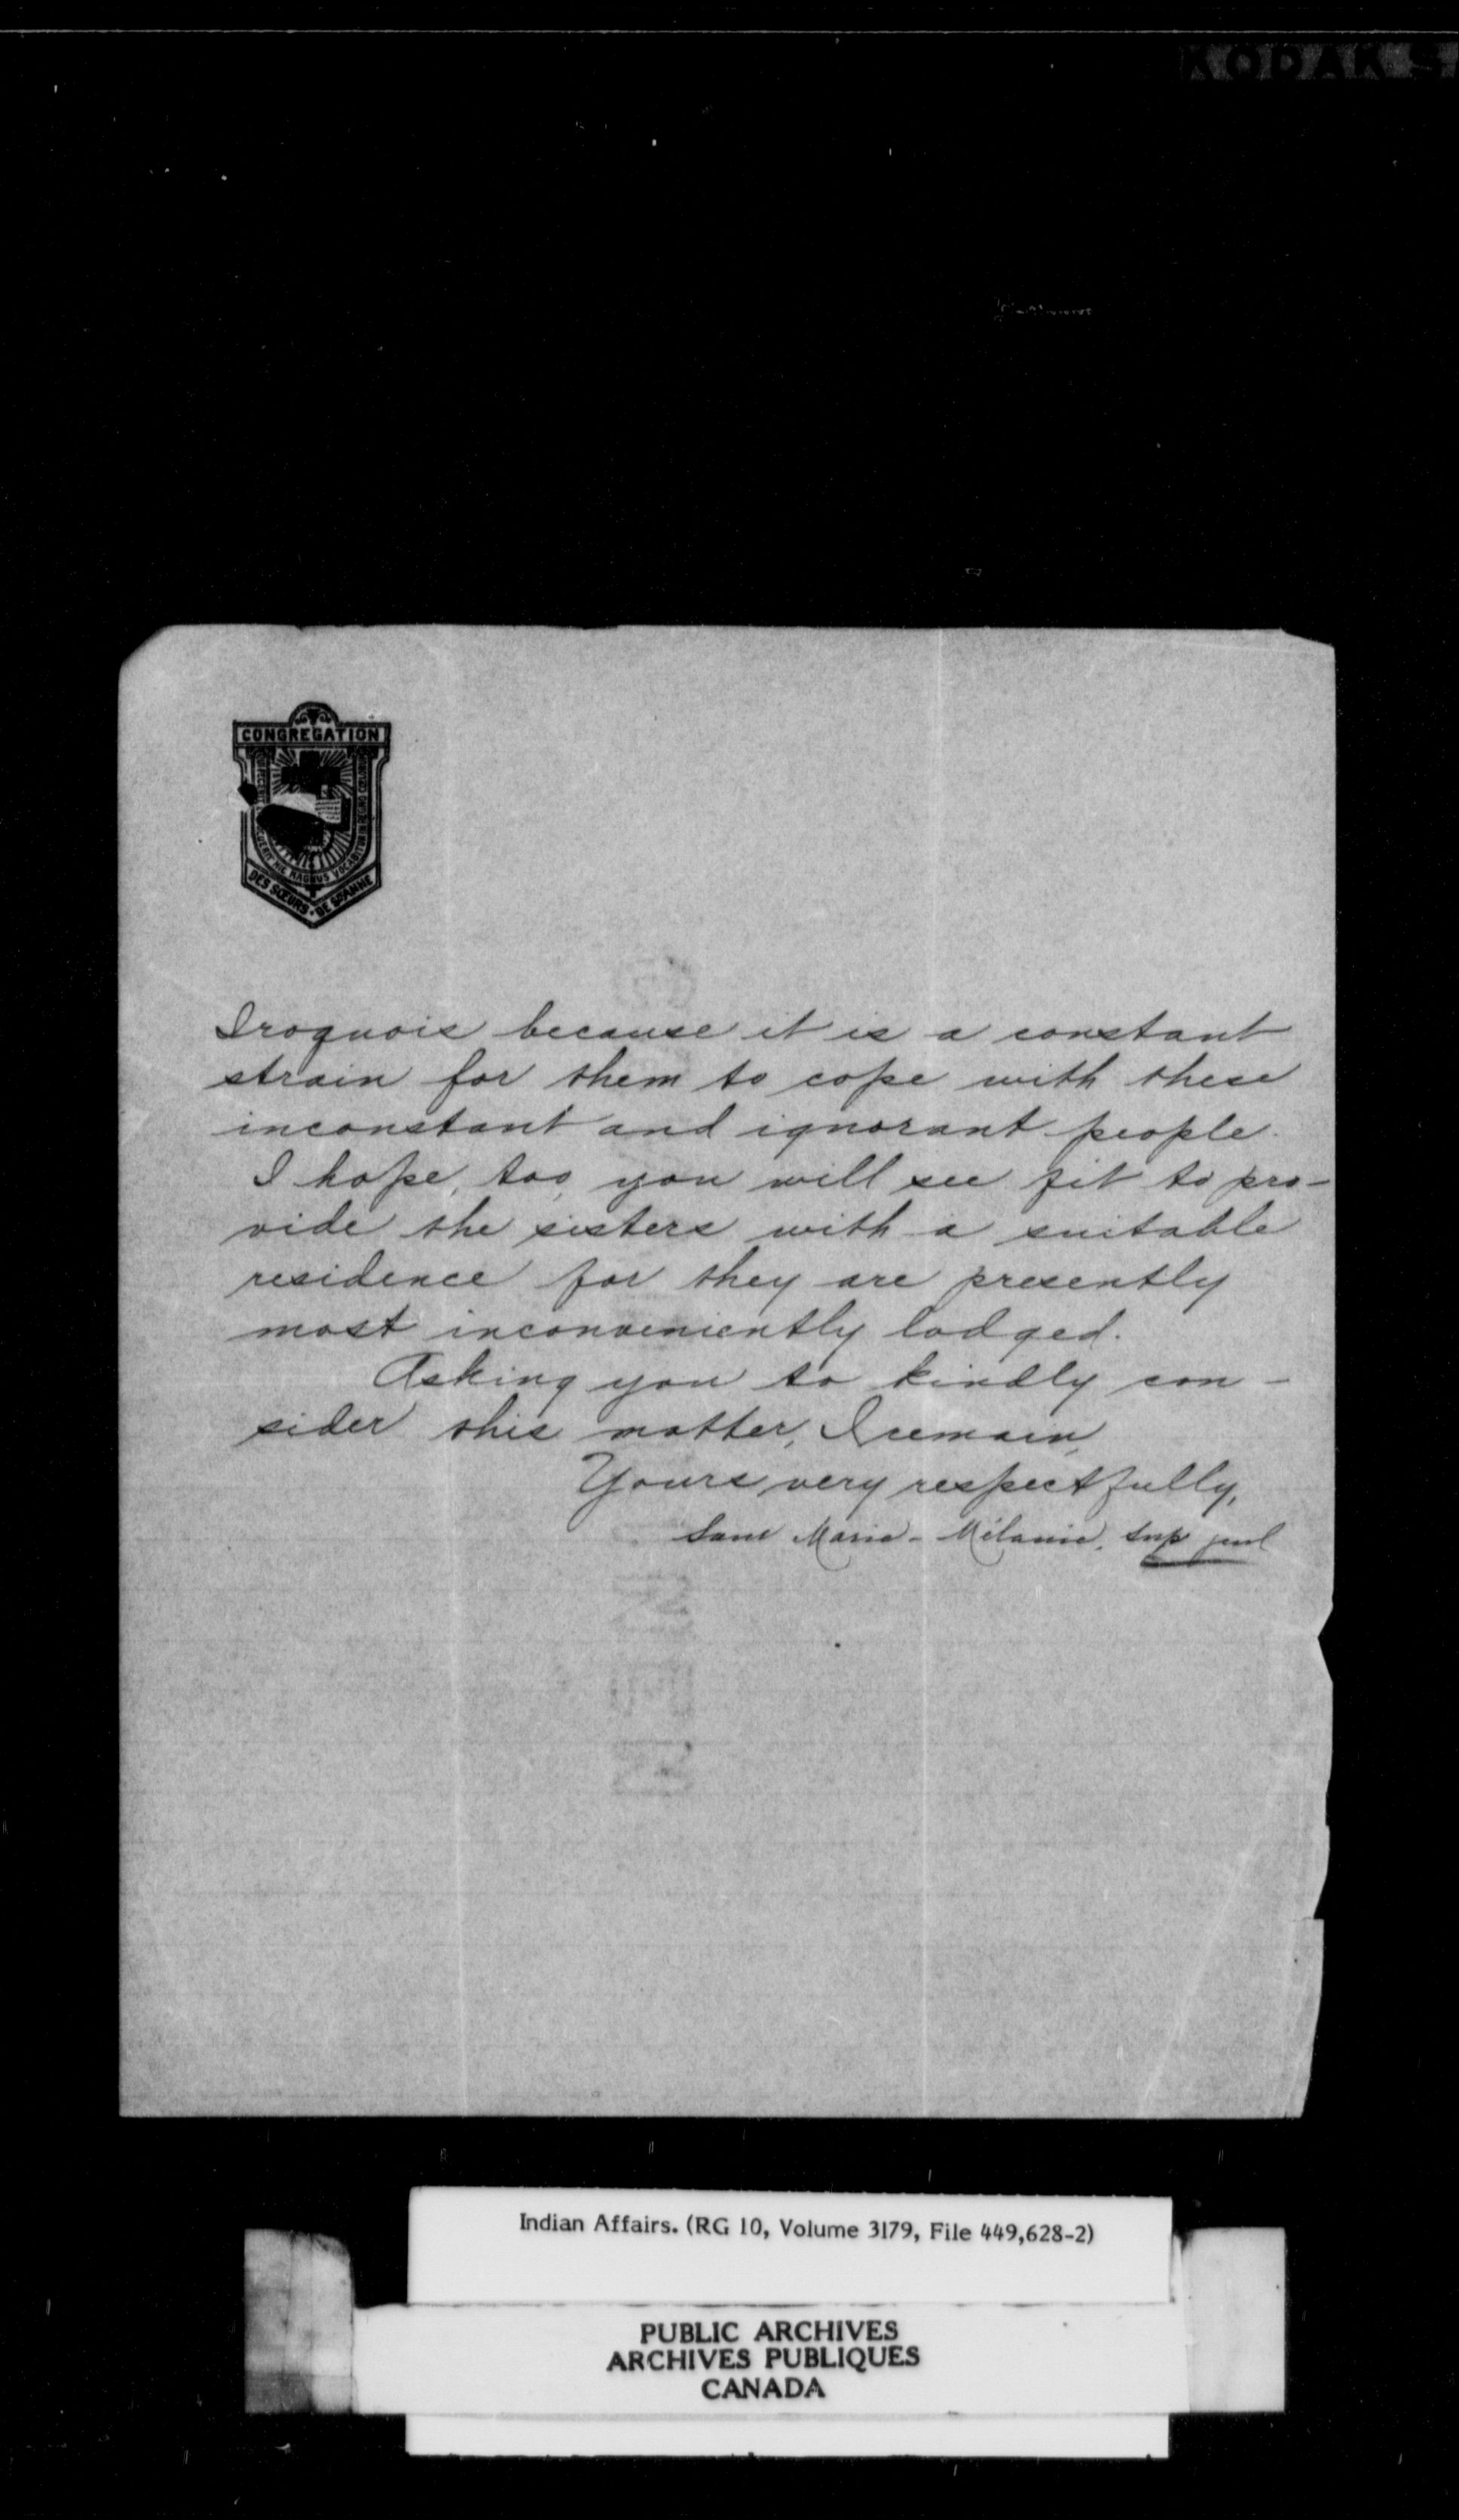 KODAK S
CONGREGATION
MAGNUS
DES SOEURS DE STE ANNE
Iroquois because it is a constant
strain for them to cope with these
inconstant and ignorant people.
I hope, too, you will see fit to pro-
vide the sisters with a suitable
residence for they are presently
most inconveniently lodged.
Asking you to kindly con-
sider this matter, I remain,
Yours very respectfully,
Marie-Mélanie, sup
Indian Affairs. (RG 10, Volume 3179, File 449,628-2)
PUBLIC ARCHIVES
ARCHIVES PUBLIQUES
CANADA